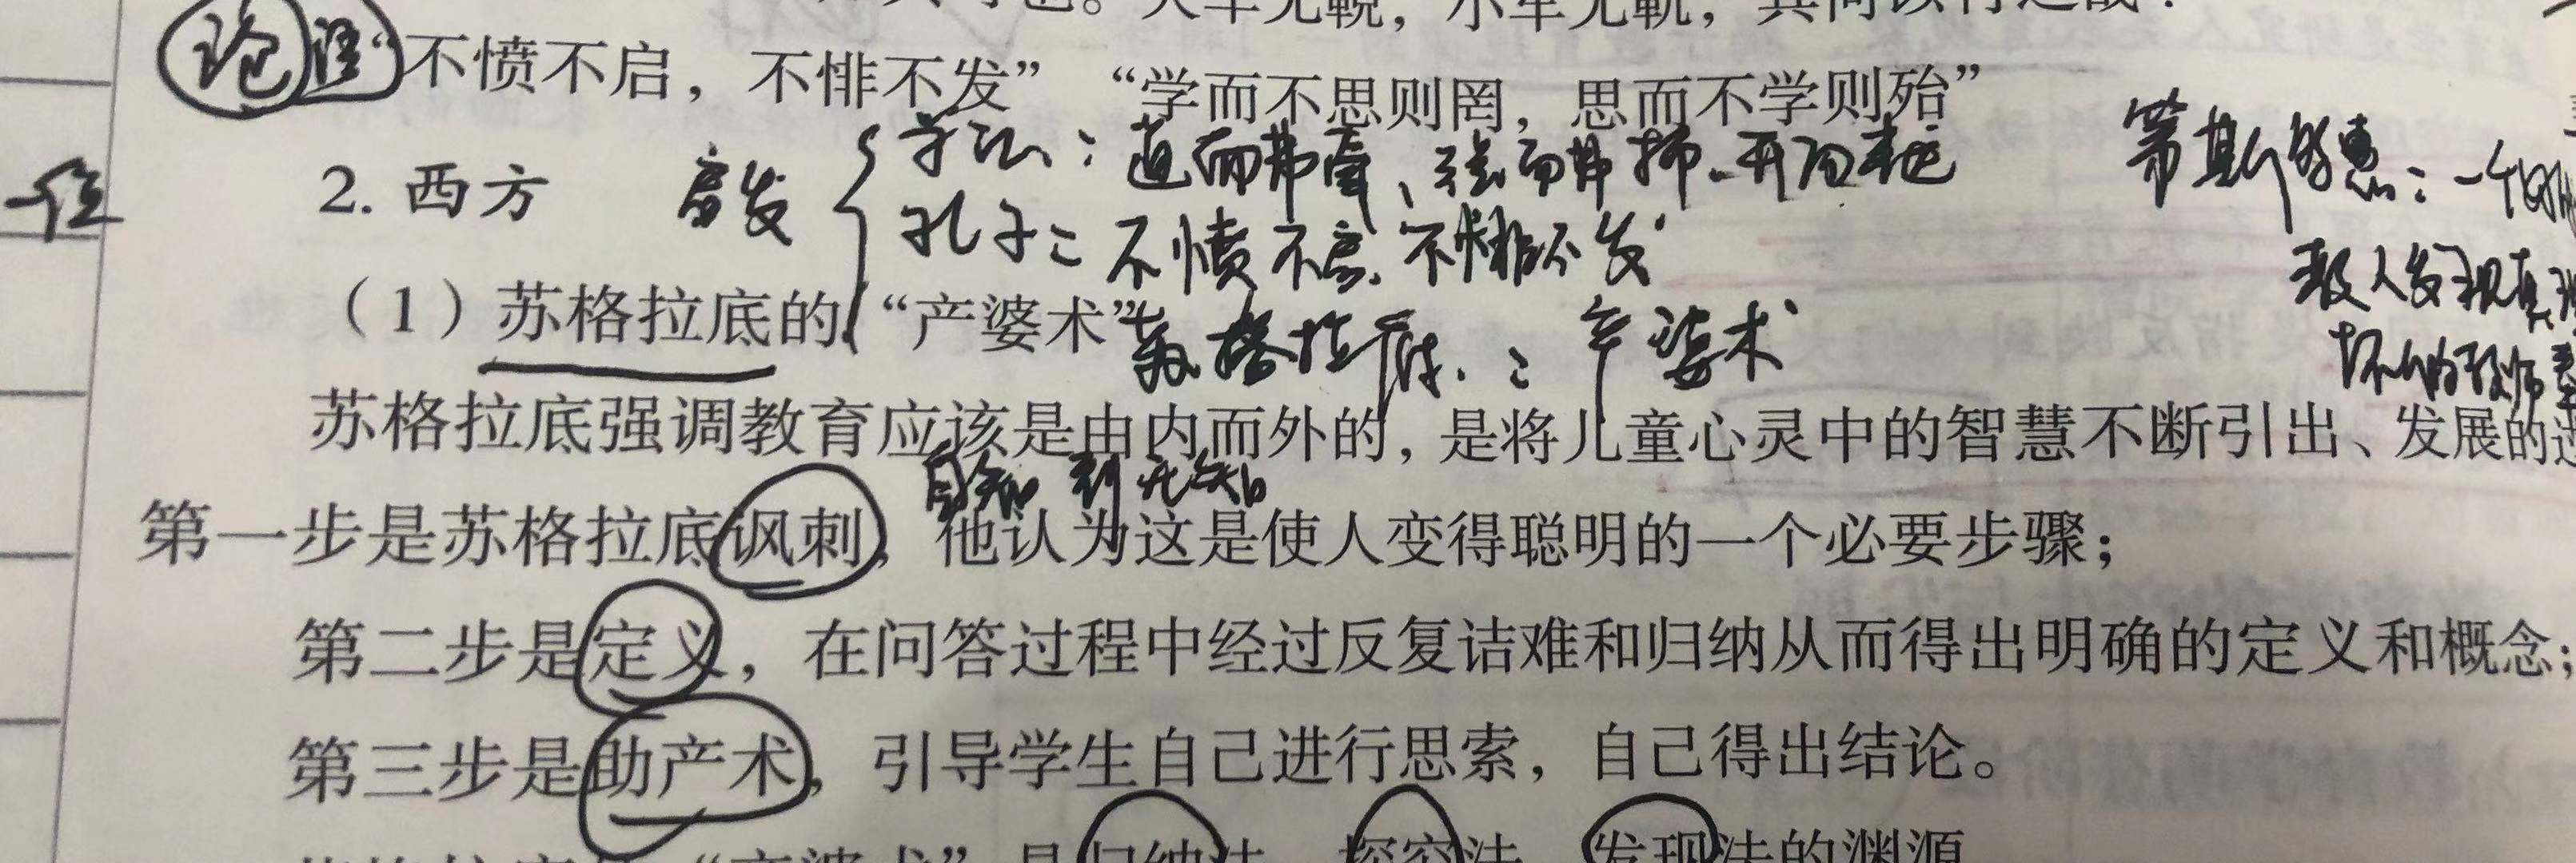 大车无輗，小车无軏，其何以行之哉？
论语“不愤不启，不悱不发” “学而不思则罔，思而不学则殆”
2. 西方
启发
学记：道而弗牵、强而弗抑、开而弗达
孔子：不愤不启，不悱不发
苏格拉底：产婆术
第斯多惠：一个
教人发现真
坏的教师
（1）苏格拉底的“产婆术”
苏格拉底强调教育应该是由内而外的，是将儿童心灵中的智慧不断引出、发展的
自知到无知
第一步是苏格拉底讽刺，他认为这是使人变得聪明的一个必要步骤；
第二步是定义，在问答过程中经过反复诘难和归纳从而得出明确的定义和概念；
第三步是助产术，引导学生自己进行思索，自己得出结论。
“产婆术”是归纳法、探究法、发现法的渊源